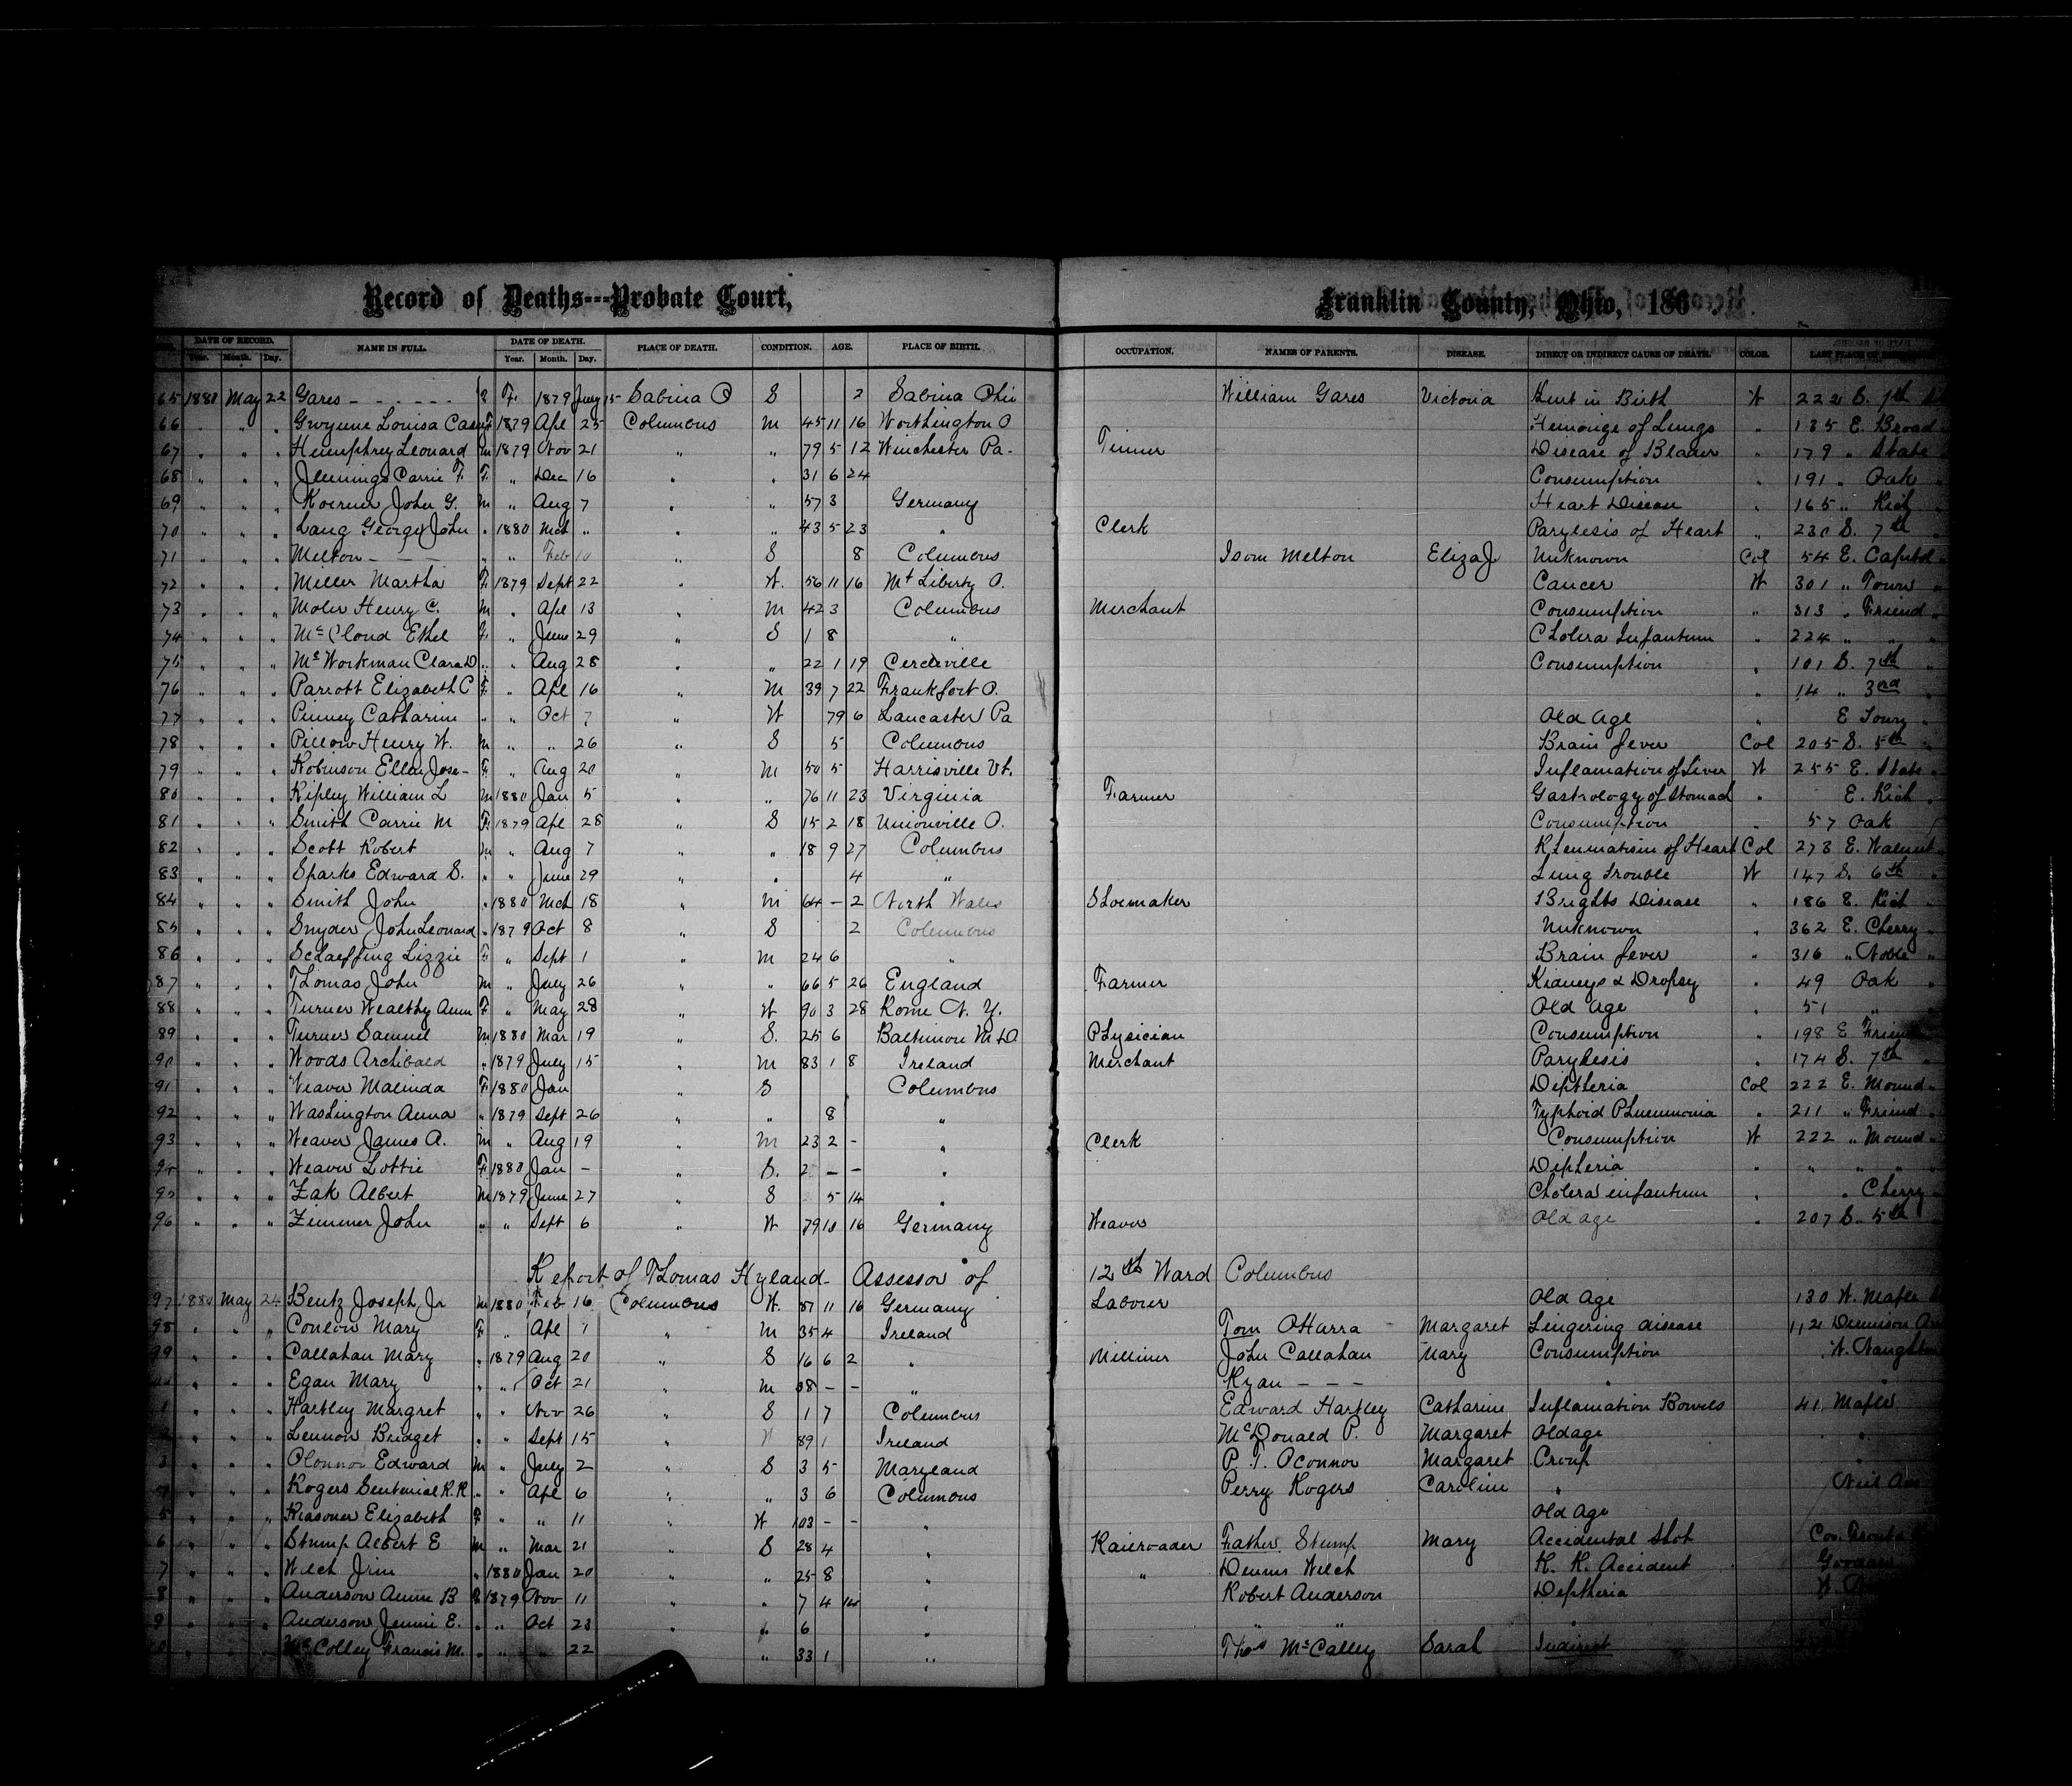 Record of Deaths---Probate Court, Franklin County, Ohio, 186 .
DATE OF RECORD. NAME IN FULL. DATE OF DEATH. PLACE OF DEATH. CONDITION. AGE. PLACE OF BIRTH. OCCUPATION. NAMES OF PARENTS. DISEASE. DIRECT OR INDIRECT CAUSE OF DEATH. COLOR. LAST PLACE OF
Year. Month. Day. Year. Month. Day.
65 1880 May 22 Gares - - - - - - F. 1879 July 15 Sabina O S 2 Sabina Ohio William Gares Victoria Hurt in Birth W 222 S. 7th
66 " " " Gwynne Louisa F 1879 Ape 25 Columbus M 45 11 16 Worthington O Hemorige of Lungs " 135 E. Broad "
67 " " " Humphrey Leonard M 1879 Nov 21 " " 79 5 12 Winchester Pa. Tinner Disease of Blader " 179 " State "
68 " " " Jennings Carrie F. F. " Dec 16 " " 31 6 24 Consumption " 191 " Oak "
69 " " " Koerner John G. M " Aug 7 " " 57 3 Germany Heart Disease " 165 " Rich "
70 " " " Lang George John " 1880 Mch " " " 43 5 23 " Clerk Parylesis of Heart " 230 S. 7th "
71 " " " Melton - - - " " Feb 10 " S 8 Columbus Isom Melton Eliza J Unknown Col 54 E. Capitol "
72 " " " Meller Martha F. 1879 Sept 22 " W. 56 11 16 Mt Liberty O. Cancer W 301 " Town "
73 " " " Moler Henry C. M " Ape 13 " M 42 3 Columbus Merchant Consumption " 313 " Friend "
74 " " " McCloud Ethel F. " June 29 " S 1 8 " Cholera Infantum " 224 " " "
75 " " " McWorkman Clara D " " Aug 28 " " 22 1 19 Cercleville Consumption " 101 S. 7th "
76 " " " Parrott Elizabeth C F. " Ape 16 " M 39 7 22 Frankfort O. " 14 " 3rd "
77 " " " Pinney Catharine " " Oct 7 " W 79 6 Lancaster Pa Old Age " E "
78 " " " Pillow Henry W. M " " 26 " S 5 Columbus Brain fever Col 205 S. 5th "
79 " " " Robinson Ellen Jose- F. " Aug 20 " M 50 5 Harrisville Vt. Inflamation of Liver W 255 E. State "
80 " " " Ripley William L M 1880 Jan 5 " " 76 11 23 Virginia Farmer Gastrology of Stomach " E. Rich "
81 " " " Smith Carrie M F. 1879 Ape 28 " S 15 2 18 Unionville O. Consumption " 57 Oak
82 " " " Scott Robert M " Aug 7 " " 18 9 27 Columbus Rheumatism of Heart Col 273 E. Walnut "
83 " " " Sparks Edward S. " " June 29 " " 4 " Lung trouble W 147 S. 6th "
84 " " " Smith John " 1880 Mch 18 " M 64 - 2 North Wales Shoemaker Brights Disease " 186 E. Rich "
85 " " " Snyder John Leonard " 1879 Oct 8 " S 2 Columbus Unknown " 362 E. Cherry "
86 " " " Schaeffing Lizzie F. " Sept 1 " M 24 6 " Brain fever " 316 " Noble "
87 " " " Thomas John M " July 26 " " 66 5 26 England Farmer Kidneys & Dropsy " 49 Oak "
88 " " " Turner Wealthy Ann F " May 28 " W 90 3 28 Rome N. Y. Old Age " 51 " "
89 " " " Turner Samuel M 1880 Mar 19 " S. 25 6 Baltimore Md Physician Consumption " 198 E Friend
90 " " " Woods Archibald " 1879 July 15 " M 83 1 8 Ireland Merchant Parylesis " 174 S. 7th "
91 " " " Weaver Malinda F. 1880 Jan " S Columbus Deptheria Col 222 E. Mound "
92 " " " Washington Anna " 1879 Sept 26 " " 8 " Typhoid Pheumonia " 211 " Friend "
93 " " " Weaver James A. M " Aug 19 " M 23 2 - " Clerk Consumption W 222 " Mound "
94 " " " Weaver Lottie F. 1880 Jan - " S. 2 - - " Diptheria " " " "
95 " " " Zak Albert M 1879 June 27 " S 5 14 " Cholera infantum " " Cherry "
96 " " " Zimmer John " " Sept 6 " W 79 10 16 Germany Weaver Old age " 207 S. 5th "
Report of Thomas Hyland - Assessor of 12th Ward Columbus
97 1880 May 24 Bentz Joseph Jr M 1880 Feb 16 Columbus W. 87 11 16 Germany Laborer Old Age 130 W. Maple
98 " " " Conlon Mary F " Ape 1 " M 35 4 Ireland Tom OHarra Margaret Lingering disease 112 Dennison
99 " " " Callahan Mary " 1879 Aug 20 " S 16 6 2 " Milliner John Callahan Mary Consumption W. Naughten
" " " Egan Mary " " Oct 21 " M 38 - - " Ryan - - - "
1 " " " Hartley Margret " " Nov 26 " S 1 7 Columbus Edward Hartley Catharine Inflamation Bowels 41 Maple
" " " Lennon Bridget " " Sept 15 " 89 1 Ireland McDonald P. Margaret Old age "
3 " " " OConnor Edward M " July 2 " S 3 5 Maryland P. T. OConnor Margaret Croup "
" " " Rogers Sentenial R. R " " Ape 6 " " 3 6 Columbus Perry Rogers Caroline " Neil
5 " " " Reasoner Elizabeth F " " 11 " W 103 - - " Old Age
6 " " " Stump Albert E M " Mar 21 " S 28 4 " Railroader Father Stump Mary Accidental Shot Cor.
7 " " " Welch Jim " 1880 Jan 20 " " 25 8 " " Dennis Welch R. R. Accident
8 " " " Anderson Annie B F 1879 Nov 11 " " 7 4 14 " Robert Anderson Deptheria W.
9 " " " Anderson Jennie E. " " Oct 23 " " 6 " " " "
" " " McColley Francis M. " " " 22 " 33 1 " Thos McCalley Sarah Indirect